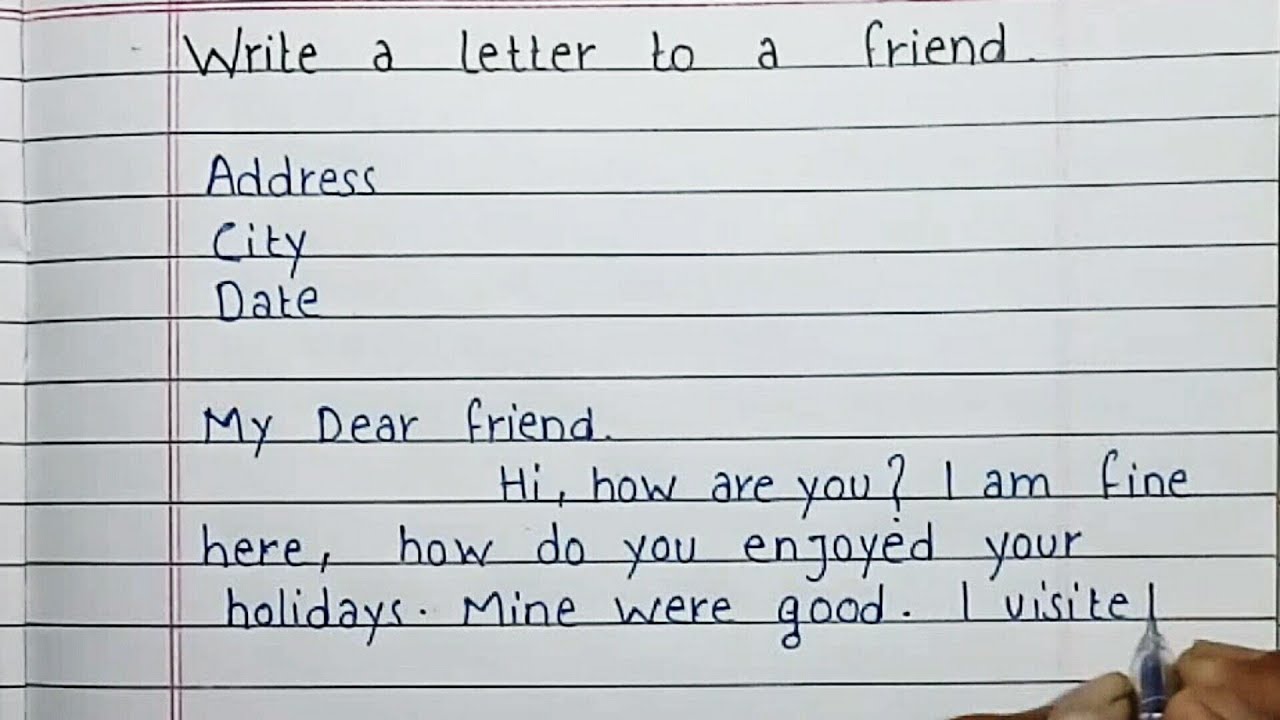 Write a letter to a friend.
Address
City
Date
My Dear friend.
Hi, how are you? I am fine
here, how do you enjoyed your
holidays. Mine were good. I visite